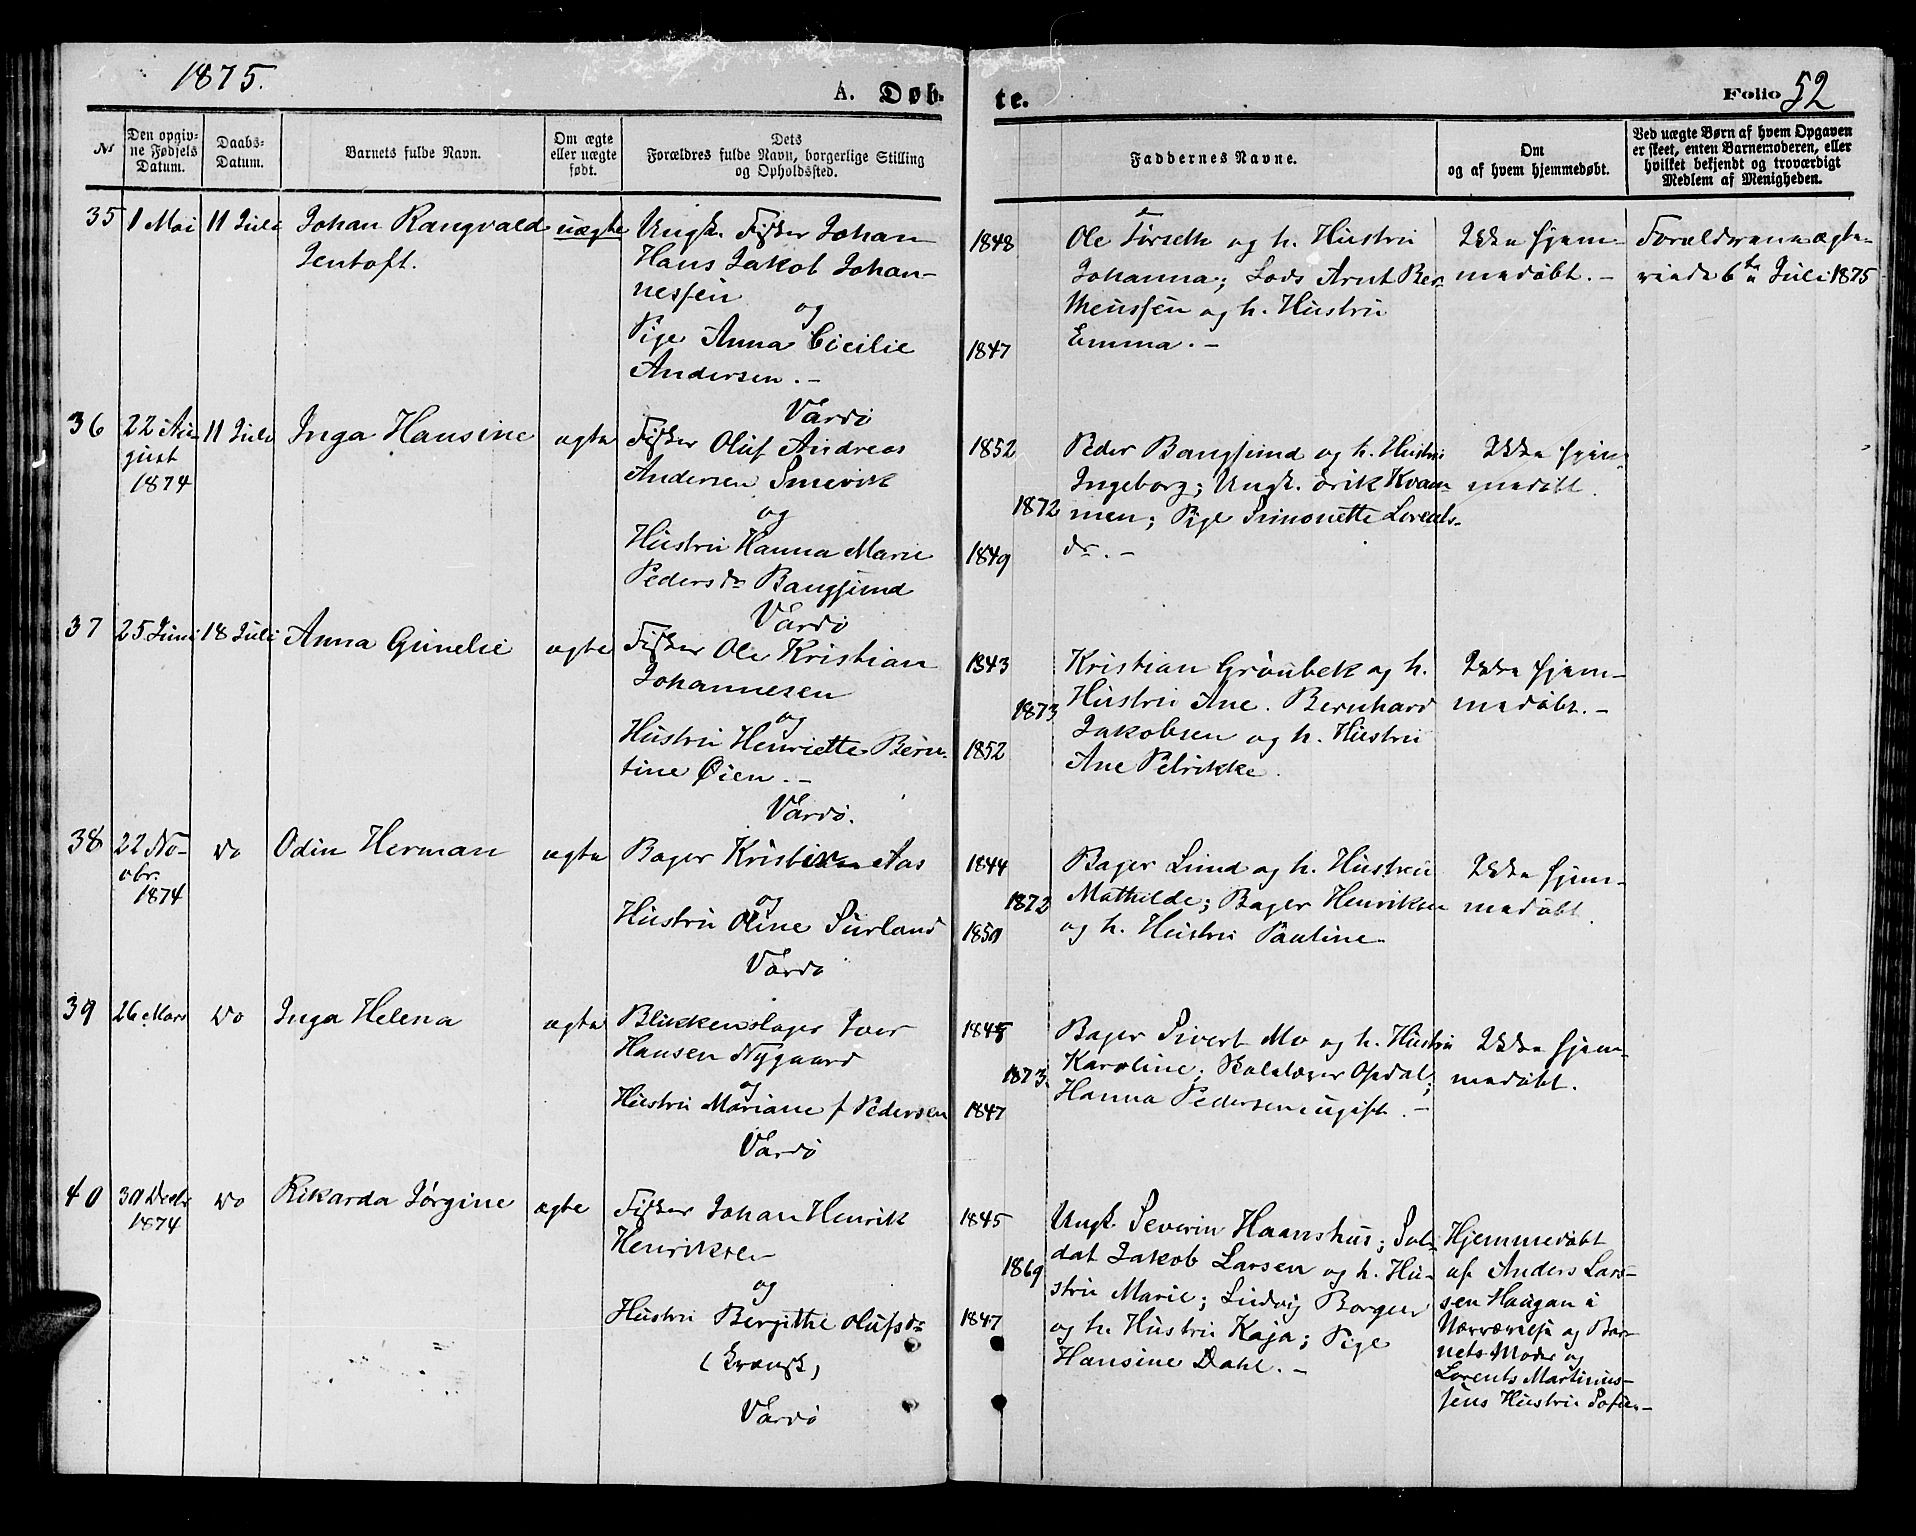 1875.
A. Døb-
te.
Folio 52
No
Den opgiv-
ne Fødsels
Datum.
Daabs-
Datum.
Barnets fulde Navn.
Om ægte
eller uægte
født.
Dets
Forældres fulde Navn, borgerlige Stilling
og Opholdssted.
Faddernes Navne.
Om
og af hvem hjemmedøbt.
Ved uægte Børn af hvem Opgaven
er skeet, enten Barnemoderen, eller
hvilket bekjendt og troværdigt
Medlem af Menigheden.
35
1 Mai
11 Juli
Johan Rangvald
Jentoft.
uægte
Ungk. Fisker Johan
Hans Jakob Johan-
nessen
og
Pige Anna Cicilie
Andersen. -
Vardö
1848
1847
Ole Forseth og h. Hustru
Johanna; Lods Arnt Ber-
theussen og h. Hustru
Emma. -
Ikke hjem-
medöbt. -
Forældrene ægte-
viede 6te Juli 1875
36
22 Au-
gust
1874
11 Juli
Inga Hansine
ægte
Fisker Oluf Andreas
Andersen Snevik
og
Hustru Hanna Marie
Pedersdr Bangsund
Vardö
1852
1872
1849
Peder Bangsund og h. Hustru
Ingeborg; Ungk. Erik Kvam-
men; Pige Simonette Lorents-
dr. -
Ikke hjem-
medöbt.
37
25 Juni
18 Juli
Anna Gunelie
ægte
Fisker Ole Kristian
Johannesen
og
Hustru Henriette Bern-
tine Øien. -
Vardö.
1843
1873
1852
Kristian Grönbek og h.
Hustru Ane. Bernhard
Jakobsen og h. Hustru
Ane Petrikke.
Ikke hjem-
medöbt. -
38
22 No-
vbr.
1874
do
Odin Herman
ægte
Bager Kristian Aas
og
Hustru Oline Surland
Vardö
1844
1872
1850
Bager Lund og h. Hustru
Mathilde; Bager Henriksen
og h. Hustru Pauline
Ikke hjem-
medöbt.
39
26 Mars
do
Inga Helena
ægte
Blikkenslager Iver
Hansen Nygaard
og
Hustru Mariane f Pedersen
Vardö
1845
1873.
1847
Bager Sivert Mo og h. Hustru
Karoline; Opdal;
Hanna Pedersen ugift. -
Ikke hjem-
medöbt.
40
30 Decbr
1874
do
Rikarda Jørgine
ægte
Fisker Johan Henrik
Henriksen
og
Hustru Bergitthe Olufsdr
(kvænsk)
Vardö
1845
1869
1847
Ungk. Severin Haanshus; Sol-
dat Jakob Larsen og h. Hu-
stru Marie; Ludvig Borgen
og h. Hustru Kaja; Pige
Hansine Dahl. -
Hjemmedöbt
af Anders Lars-
sen Haugan i
Nærværelse og Bar-
nets Moder og
Lorents Martinus-
sens Hustru Sofie. -